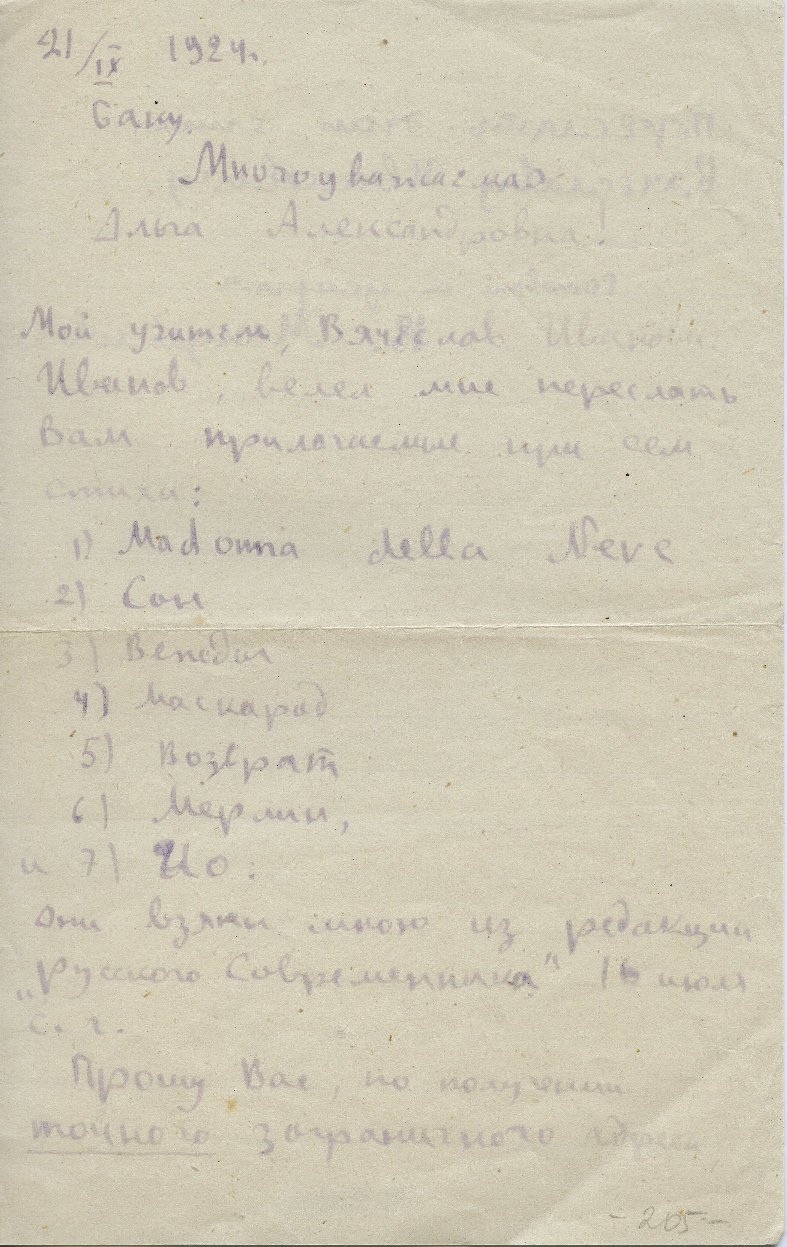 21/IX 1924г.
Баку
Многоуважаемая
Ольга Александровна!
Мой учитель, Вячеслав Иванович
Иванов, велел мне переслать
Вам прилагаемые при сем
стихи:
1) Madonna della Neve
2) Сон
3)
4) Маскарад
5) Возврат
6) Мерлин,
и 7) Ио.
Они взяты мною из редакции
„Русского Современника" 16 июля
с. г.
Прошу Вас, по получении
точного заграничного адреса
-205-